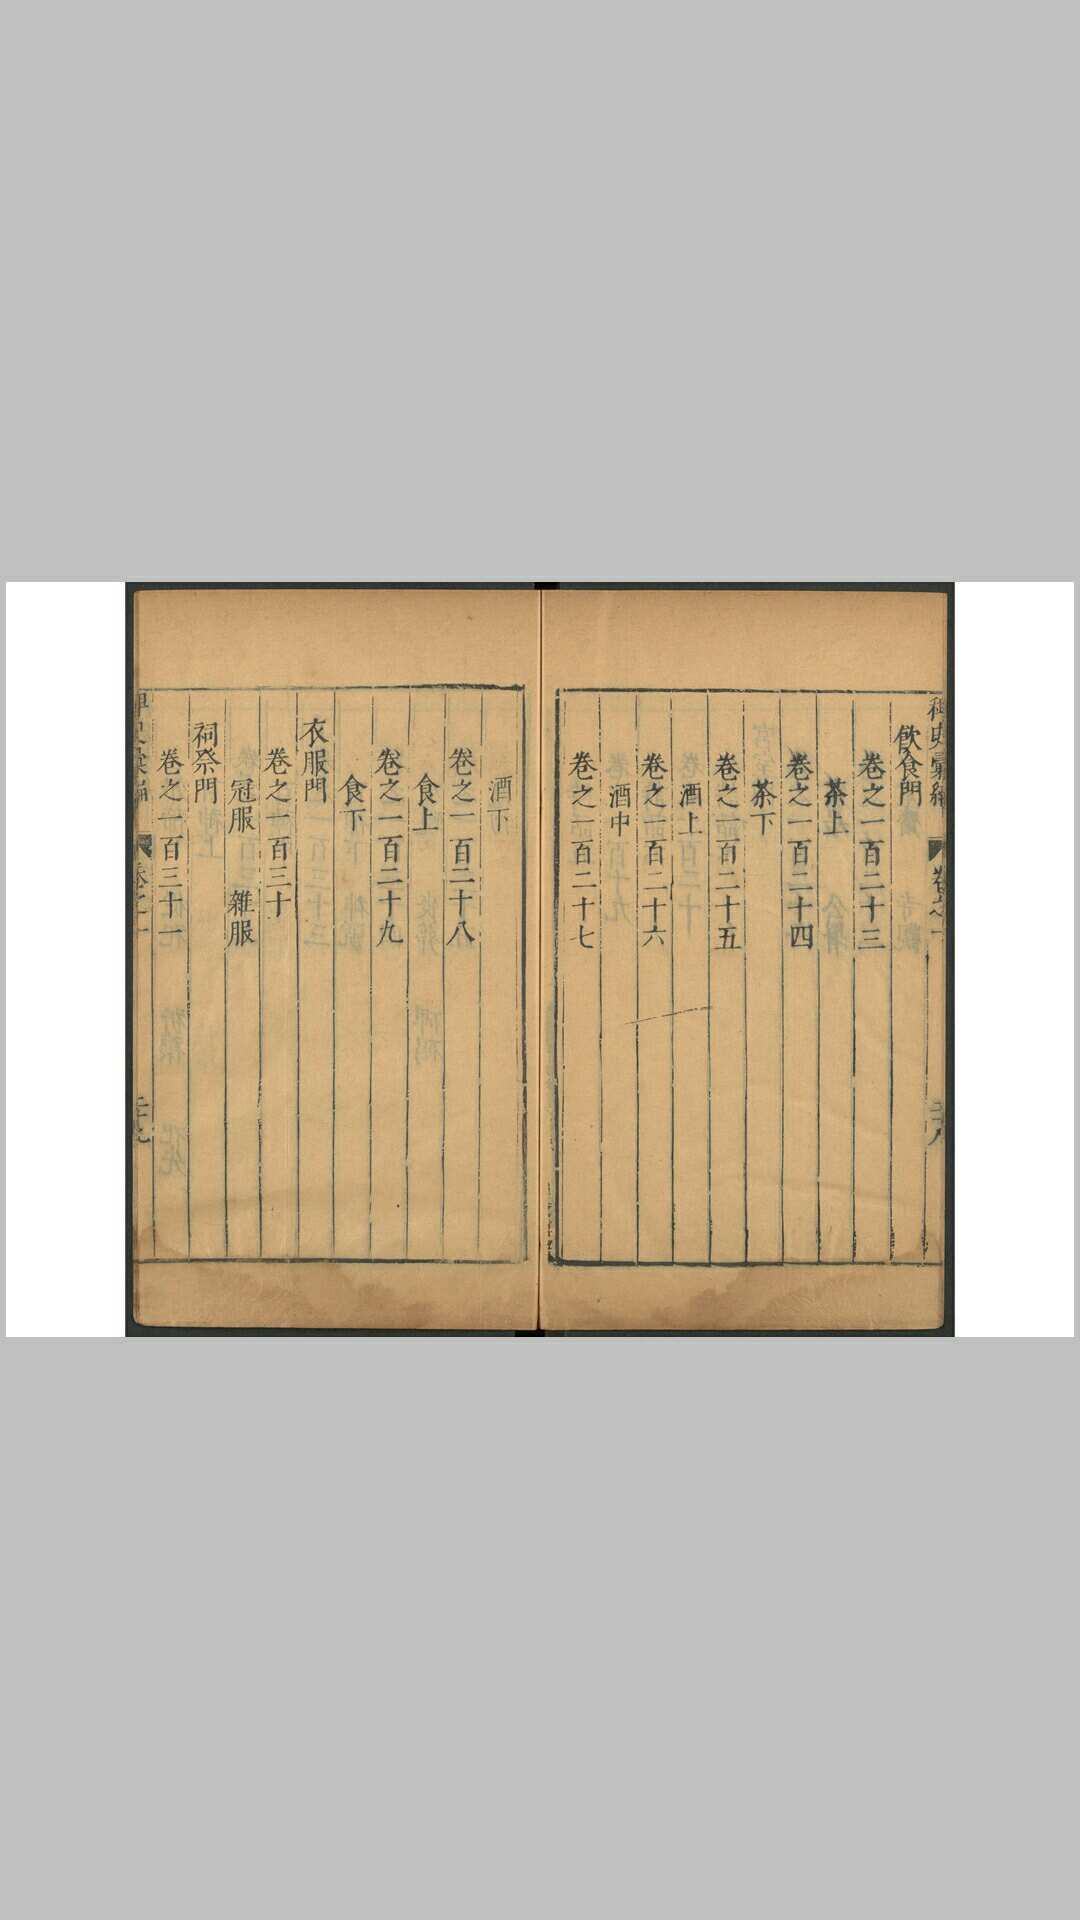 稗史彙編
卷之一
二十八
飲食門
卷之一百二十三
茶上
卷之一百二十四
茶下
卷之一百二十五
酒上
卷之一百二十六
酒中
卷之一百二十七
酒下
卷之一百二十八
食上
卷之一百二十九
食下
衣服門
卷之一百三十
冠服 雜服
祠祭門
卷之一百三十一
稗史彙編
卷之一